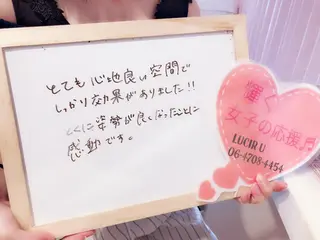 とても心地良い空間で
しっかり効果がありました!!
とくに姿勢が良くなったことに
感動です。
輝く
女子の応援♬
LUCIR U
06-4708-4454